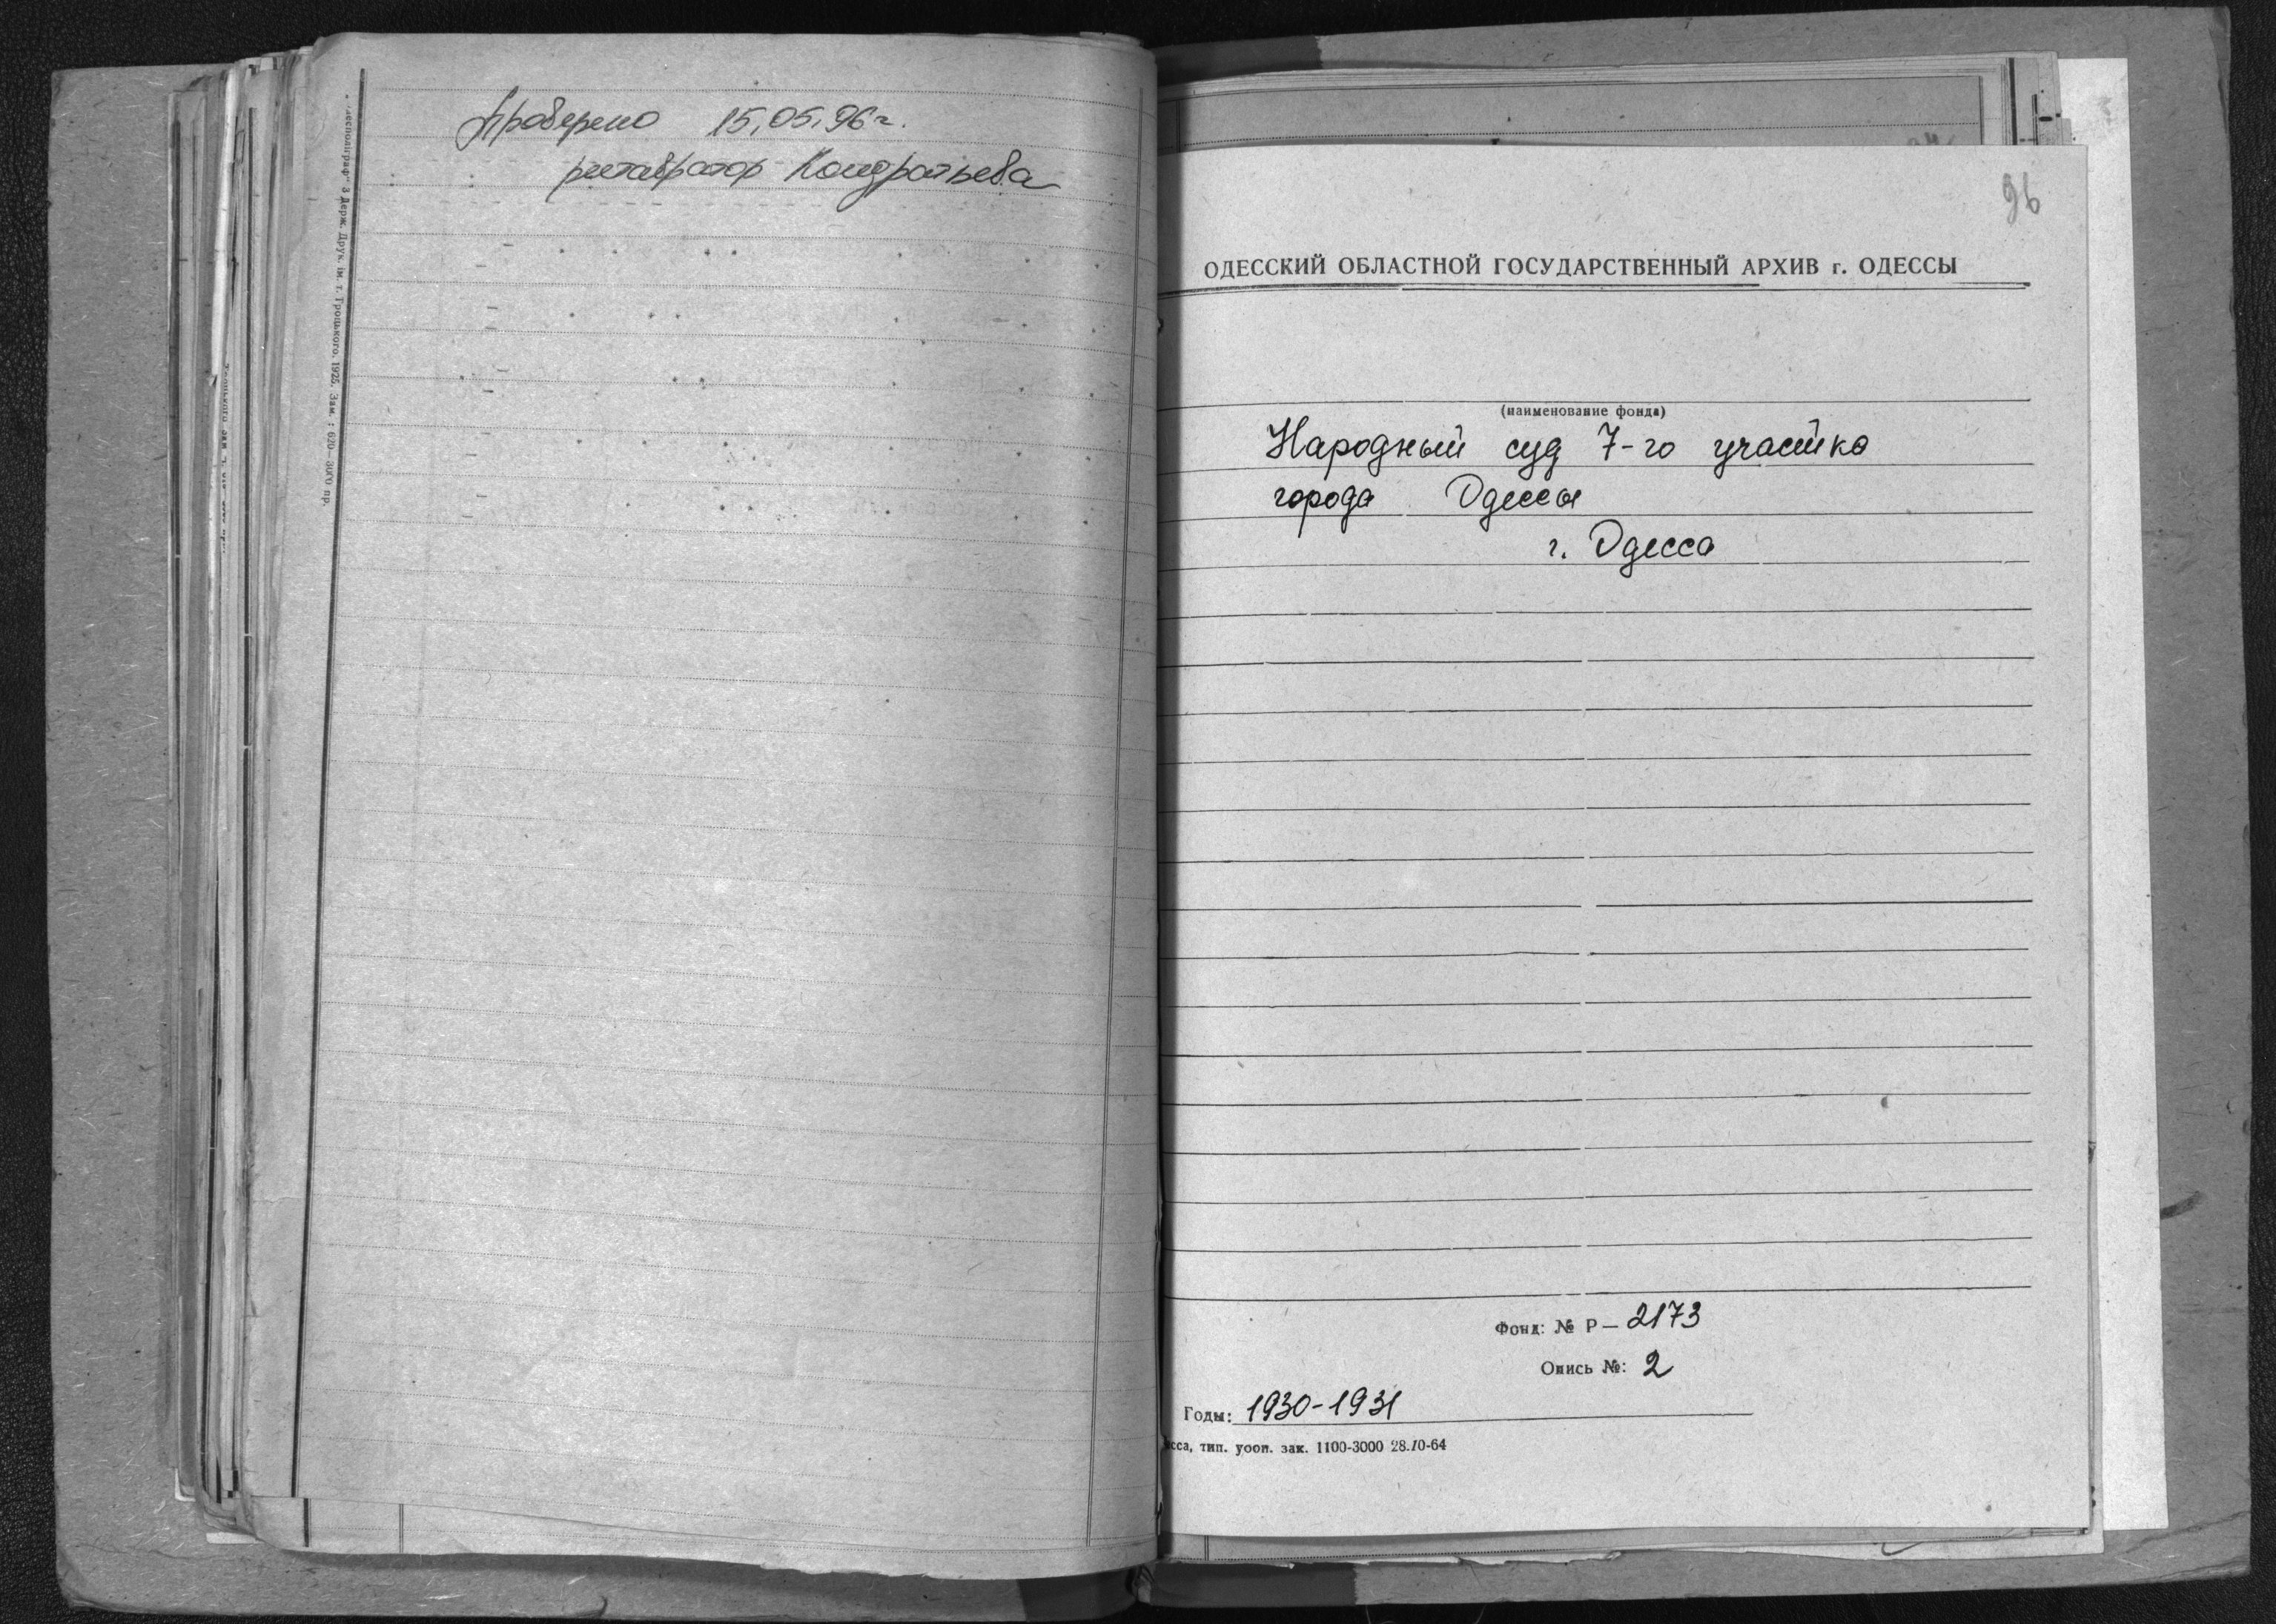 Проверено 15.05.96 г.
реставратор Кондратьева
"Лесполіграф" 3 Держ. Друк. ім. т. Троцького. 1925. Зам. : 670—3000 пр.
96
ОДЕССКИЙ ОБЛАСТНОЙ ГОСУДАРСТВЕННЫЙ АРХИВ г. ОДЕССЫ
(наименование фонда)
Народный суд 7-го участка
города Одессы
г. Одесса
Фонд: № Р— 2173
Опись №: 2
Годы: 1930-1931
есса, тип. уооп. зак. 1100-3000 28.10-64